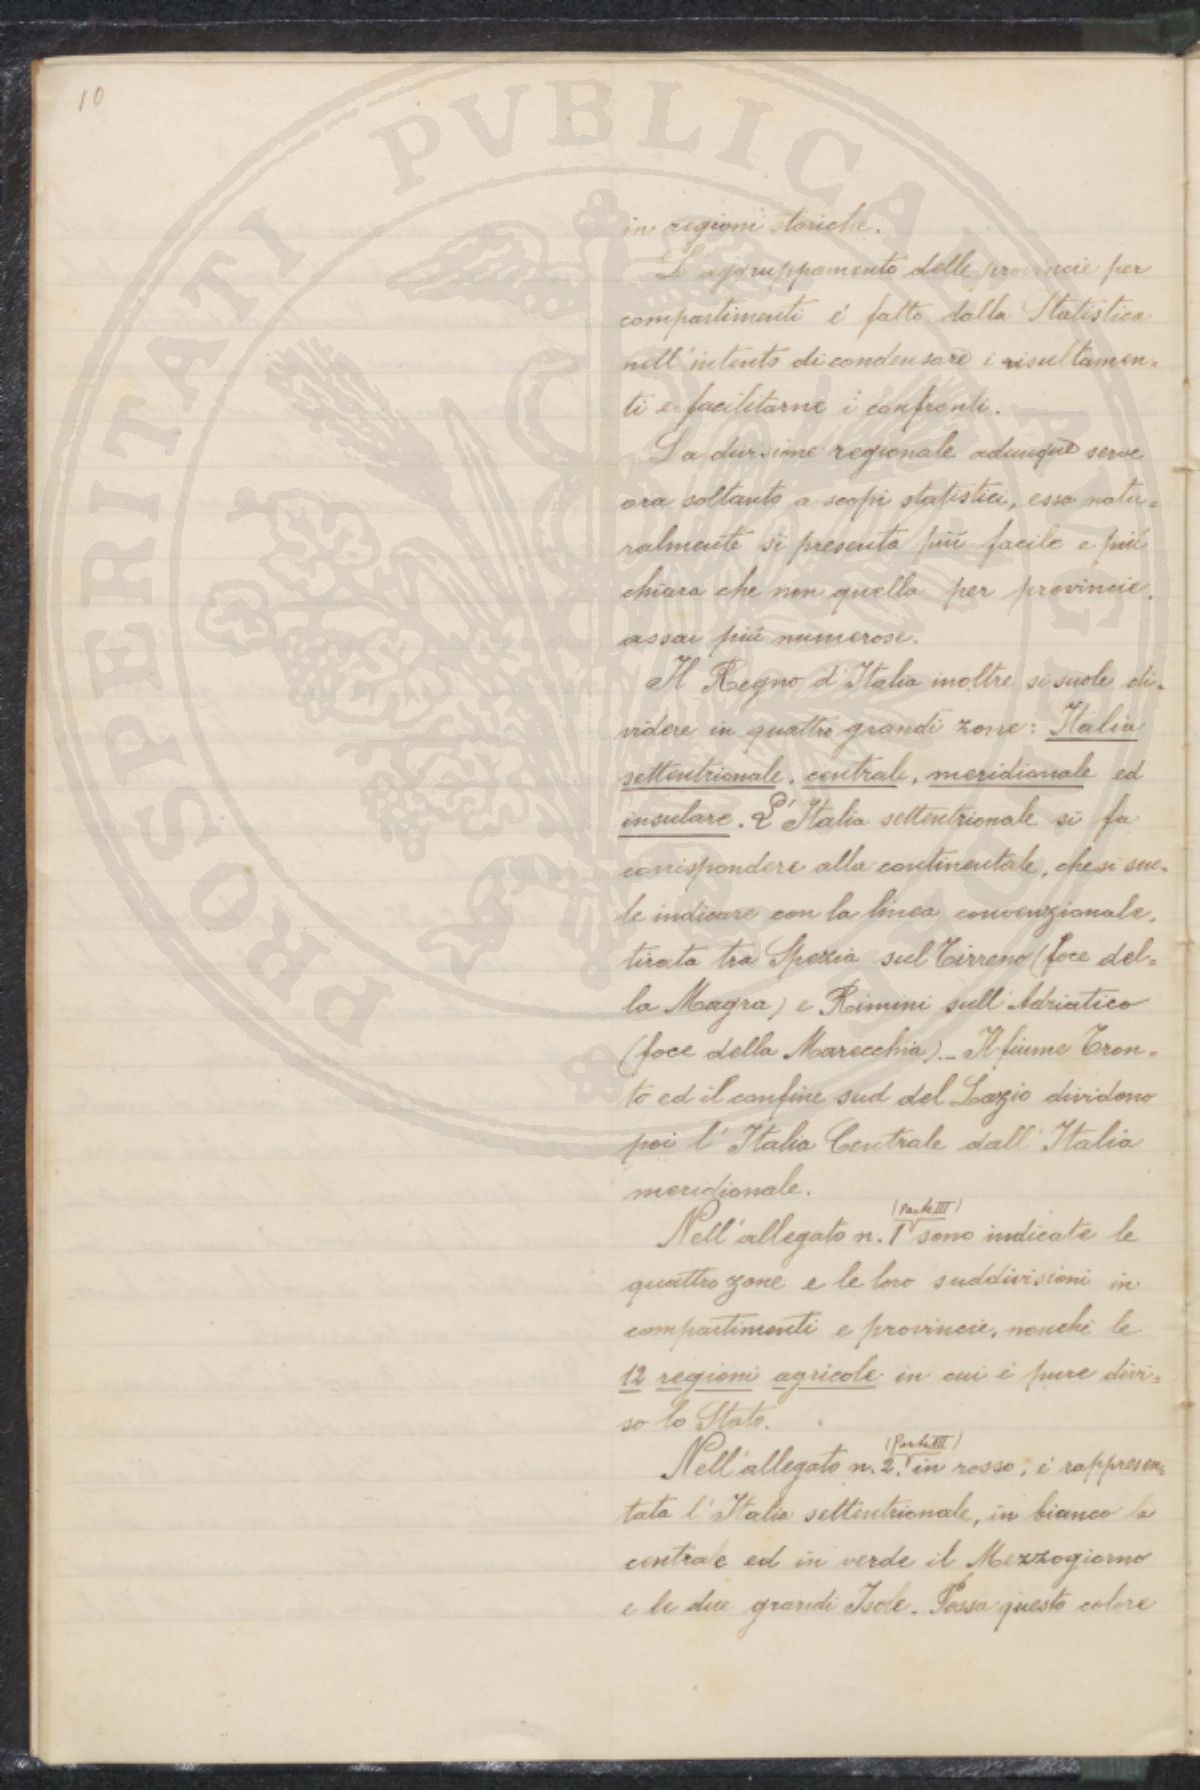 10
PROSPERITATI PVBLICAE AVGENDAE
in regioni storiche.
L'aggruppamento delle provincie per
compartimenti é fatto dalla Statistica
nell'intento di condensare i risultamen-
ti e facilitarne i confronti.
La divisione regionale adunque serve
ora soltanto a scopi statistici, essa natu-
ralmente si presenta più facile e più
chiara che non quella per provincie,
assai più numerose.
Il Regno d'Italia inoltre si suole di-
videre in quattro grandi zone: Italia
settentrionale, centrale, meridionale ed
insulare. L'Italia settentrionale si fa
corrispondere alla continentale, che si suo-
le indicare con la linea convenzionale,
tirata tra Spezia sul Tirreno (foce del-
la Magra) e Rimini sull'Adriatico
(foce della Marecchia). - Il fiume Tron-
to ed il confine sud del Lazio dividono
poi l'Italia Centrale dall'Italia
meridionale.
(Parte III)
Nell'allegato n. 1 sono indicate le
quattro zone e le loro suddivisioni in
compartimenti e provincie, nonché le
12 regioni agricole in cui é pure divi-
so lo Stato.
(Parte III)
Nell'allegato n. 2, in rosso, é rappresen-
tata l'Italia settentrionale, in bianco la
centrale ed in verde il Mezzogiorno
e le due grandi Isole. Possa questo colore